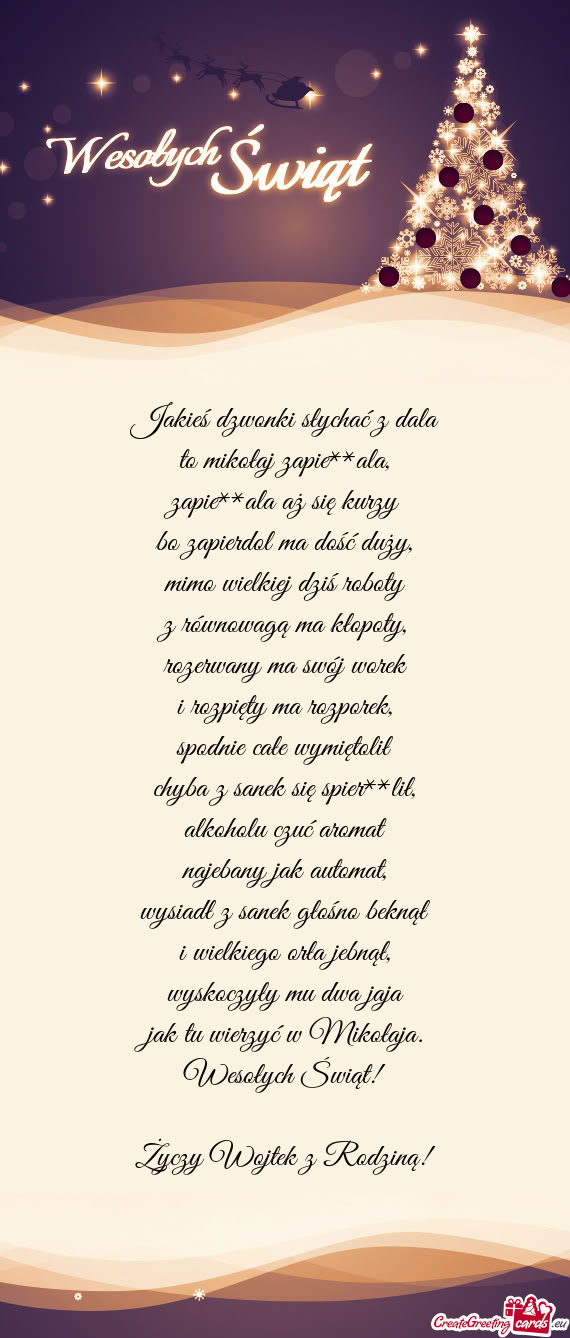 Wesołych Świąt
Jakieś dzwonki słychać z dala
to mikołaj zapie**ala,
zapie**ala aż się kurzy
bo zapierdol ma dość duży,
mimo wielkiej dziś roboty
z równowagą ma kłopoty,
rozerwany ma swój worek
i rozpięty ma rozporek,
spodnie całe wymiętolił
chyba z sanek się spier**lił,
alkoholu czuć aromat
najebany jak automat,
wysiadł z sanek głośno beknął
i wielkiego orła jebnął,
wyskoczyły mu dwa jaja
jak tu wierzyć w Mikołaja.
Wesołych Świąt!
Życzy Wojtek z Rodziną!
CreateGreetingcards.eu